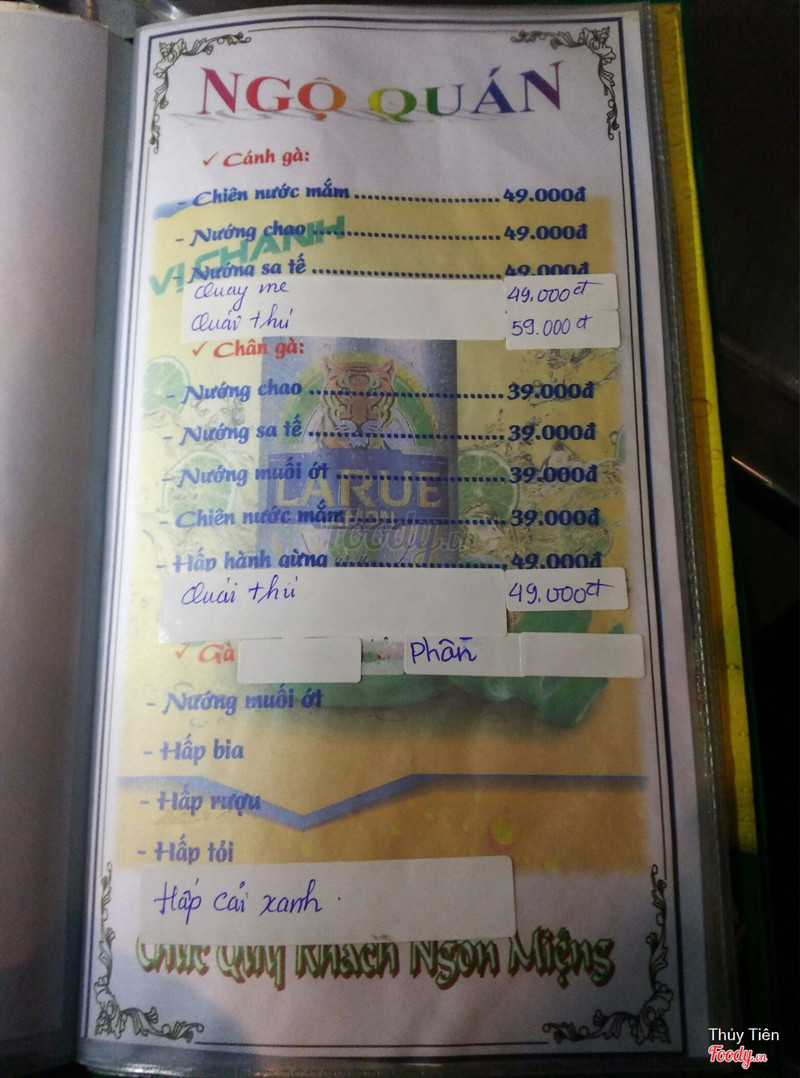 NGỘ QUÁN
✓ Cánh gà:
- Chiên nước mắm ........................ 49.000đ
VỊ CHANH
- Nướng chao ................................ 49.000đ
- Nướng sa tế ................................ 49.000đ
Quay me 49.000đ
Quái thú 59.000đ
✓ Chân gà:
- Nướng chao ................................ 39.000đ
- Nướng sa tế ................................ 39.000đ
- Nướng muối ớt ............................ 39.000đ
LARUE
- Chiên nước mắm ........................ 39.000đ
Foody.vn
- Hấp hành gừng ............................ 49.000đ
Quái thú 49.000đ
✓ Gà Phần
- Nướng muối ớt
- Hấp bia
- Hấp rượu
- Hấp tỏi
Hấp cải xanh
Chúc Quý Khách Ngon Miệng
Thủy Tiên
Foody.vn